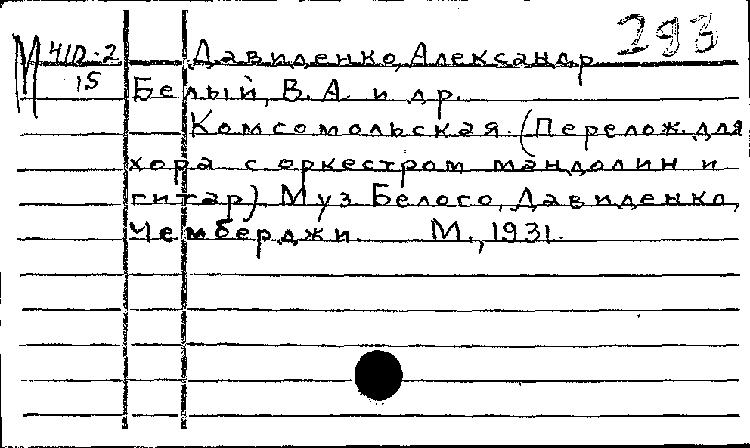 М 41Д-2 Давиденко, Александр 293
15 Белый, В.А. и др.
Комсомольская. (Перелож. для
хора с оркестром мандолин и
гитар). Муз. Белого, Давиденко,
Чемберджи. М., 1931.